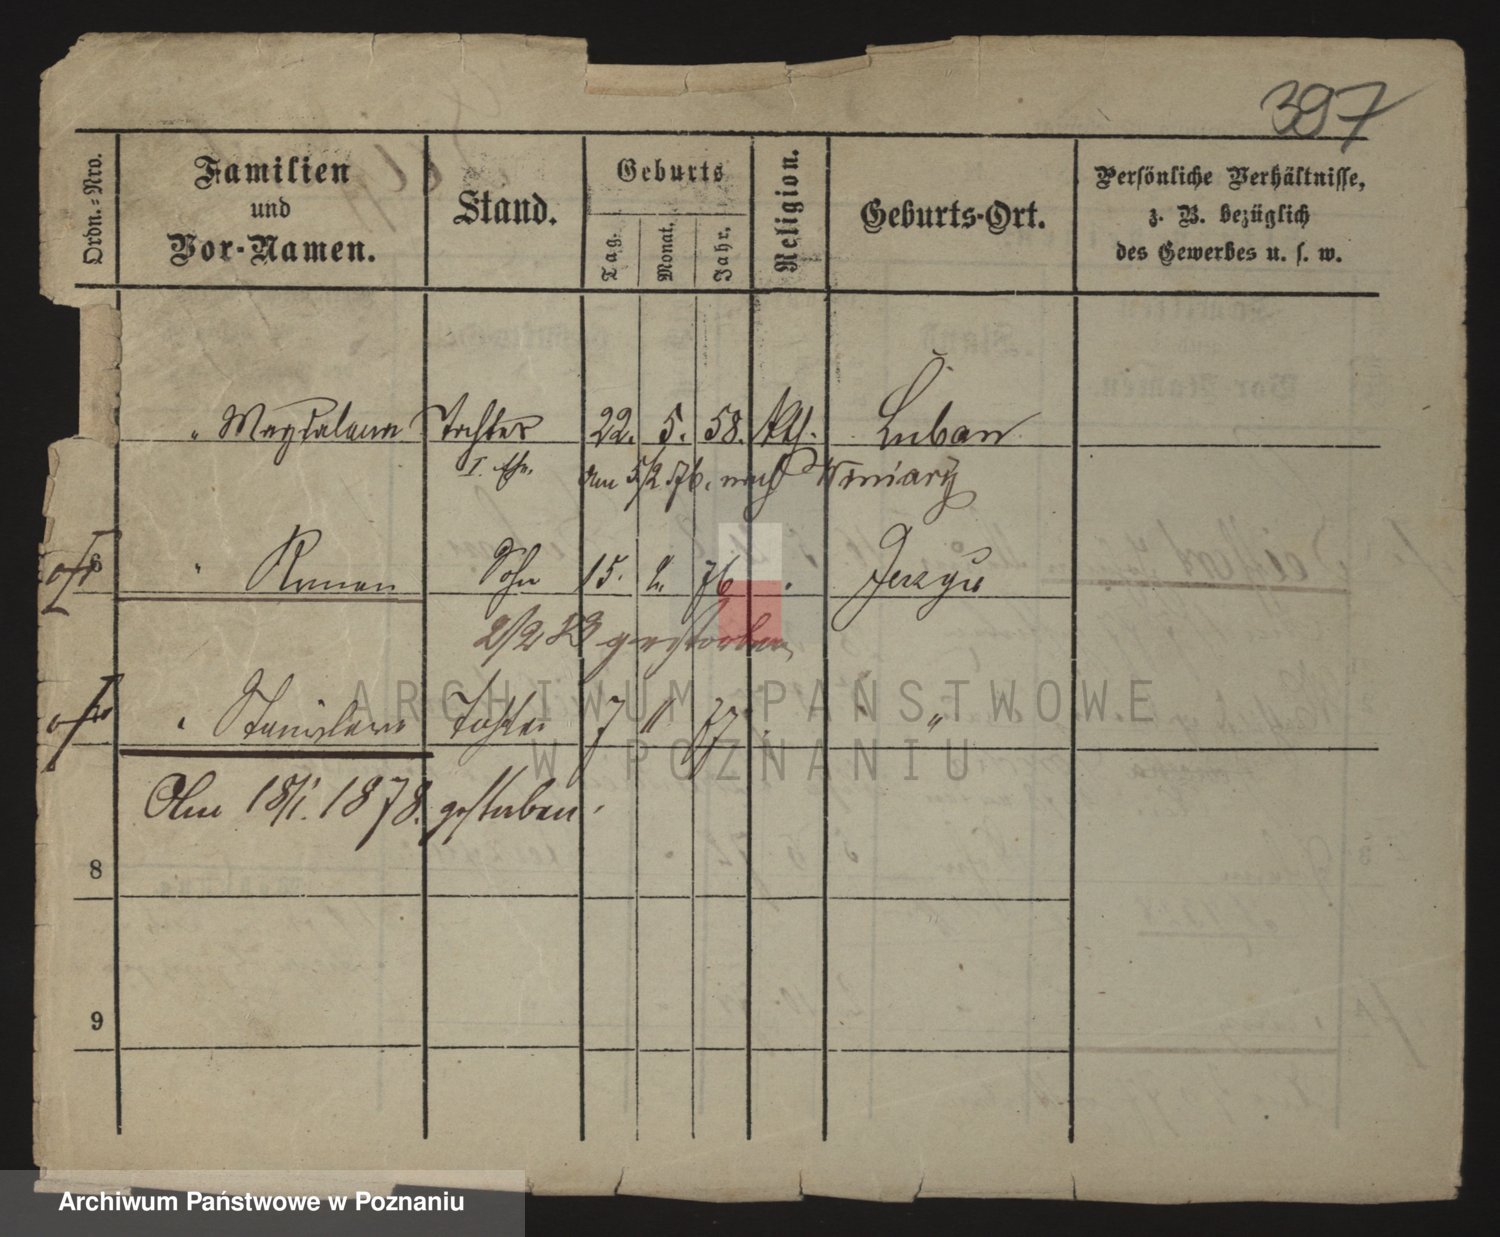 397
Ordn.-Nro.
Familien
und
Vor-Namen.
Stand.
Geburts
Tag.
Monat.
Jahr.
Religion.
Geburts-Ort.
Persönliche Verhältnisse,
z. B. bezüglich
des Gewerbes u. s. w.
" Magdalena Tochter 22. 5. 58. Kth. Luban
I. Ehe.
Am 5/2 76. nach Winiary
6 " Roman Sohn 15. 2. 76 " Jerzyce
2/2 83 gestorben
" Stanislawa Tochter 7 11 77 " "
Am 18/1. 1878. gestorben.
8
9
ARCHIWUM PAŃSTWOWE
W POZNANIU
Archiwum Państwowe w Poznaniu